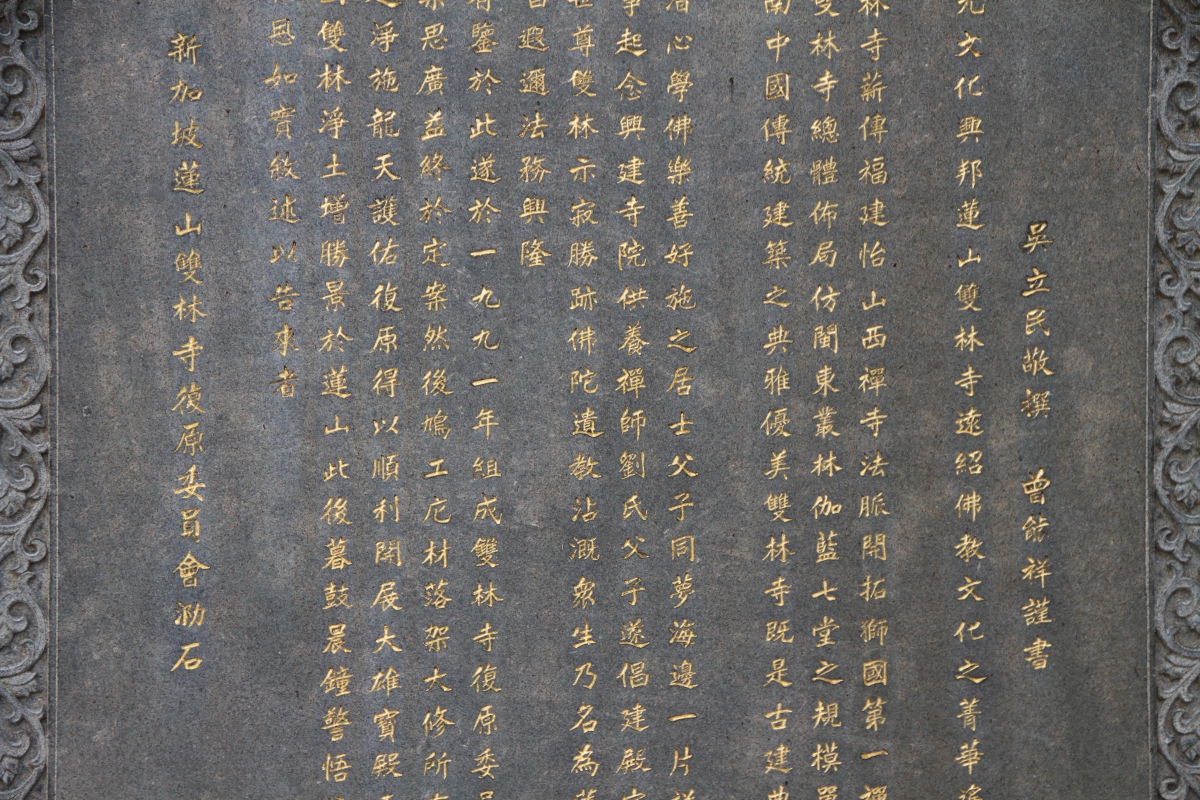 吳立民敬撰 曾能祥謹書
文化興邦蓮山雙林寺遠紹佛教文化之菁華
林寺薪傳福建怡山西禪寺法脈開拓獅國第一禪
雙林寺總體佈局仿閩東叢林伽藍七堂之規模
南中國傳統建築之典雅優美雙林寺既是古建典
心學佛樂善好施之居士父子同夢海邊一片
起念興建寺院供養禪師劉氏父子遂倡建殿
世尊雙林示寂勝跡佛陀遺教沾溉衆生乃名為
遐邇法務興隆
有鑒於此遂於一九九一年組成雙林寺復原委員
思廣益終於定案然後鳩工庀材落架大修所
淨施龍天護佑復原得以順利開展大雄寶殿
雙林淨土增勝景於蓮山此後暮鼓晨鐘警悟
恩如實敘述以告來者
新加坡蓮山雙林寺復原委員會泐石